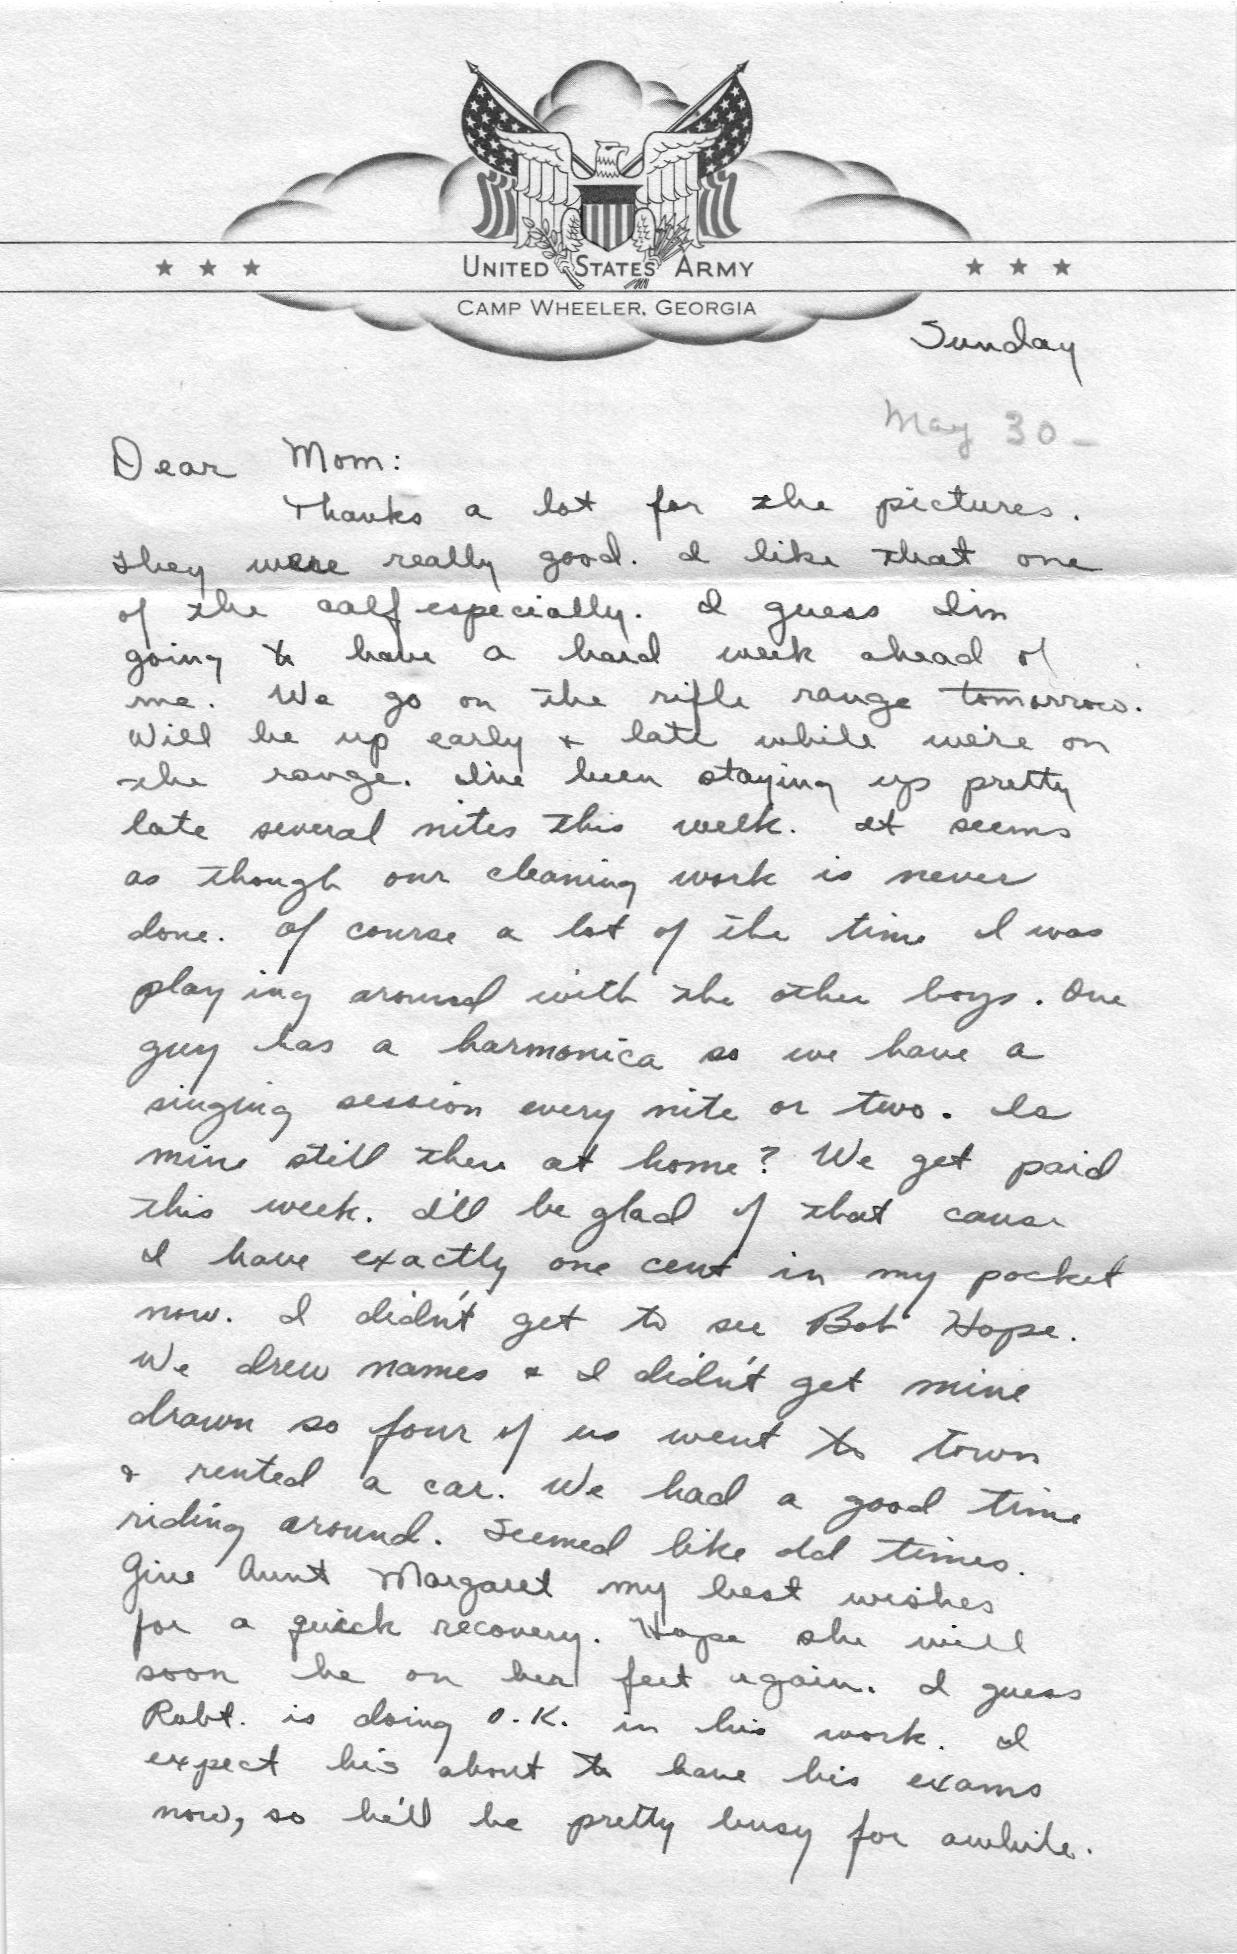 UNITED STATES ARMY
CAMP WHEELER, GEORGIA
Sunday
May 30 -
Dear Mom:
Thanks a lot for the pictures.
They were really good. I like that one
of the calf especially. I guess I'm
going to have a hard week ahead of
me. We go on the rifle range tomorrow.
Will be up early & late while we're on
the range. I've been staying up pretty
late several nites this week. It seems
as though our cleaning work is never
done. Of course a lot of the time I was
playing around with the other boys. One
guy has a harmonica so we have a
singing session every nite or two. Is
mine still there at home? We get paid
this week. I'll be glad of that cause
I have exactly one cent in my pocket
now. I didn't get to see Bob Hope.
We drew names & I didn't get mine
drawn so four of us went to town
& rented a car. We had a good time
riding around. Seemed like old times.
Give Aunt Margaret my best wishes
for a quick recovery. Hope she will
soon be on her feet again. I guess
Robt. is doing O.K. in his work. I
expect his about to have his exams
now, so he'll be pretty busy for awhile.